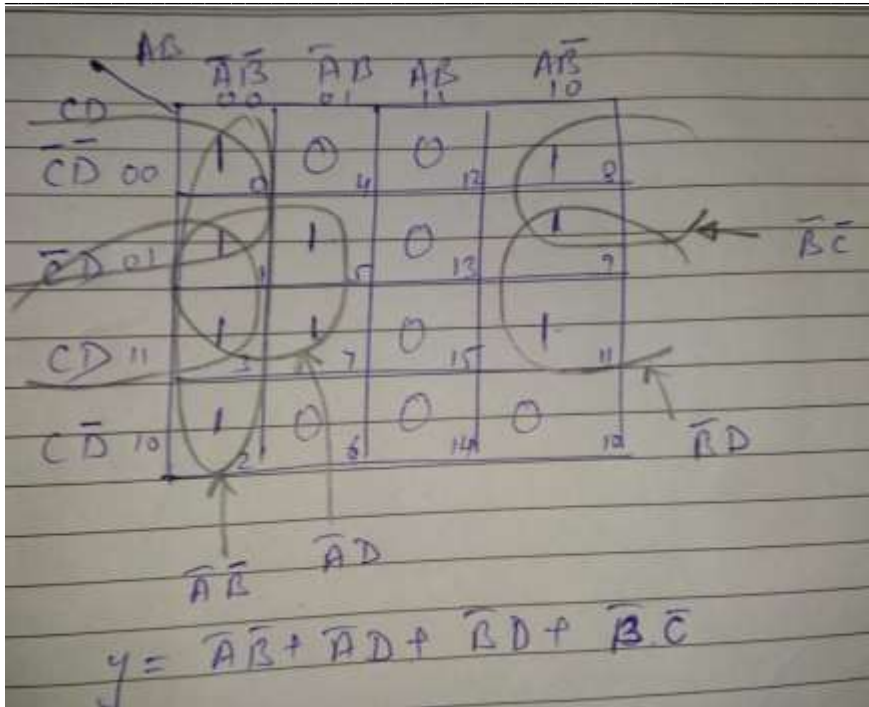 AB
A̅B̅ A̅B AB AB̅
00 01 11 10
CD
C̅D̅ 00 1 0 0 4 0 12 1 8
C̅D 01 1 1 1 5 0 13 1 9
CD 11 1 3 1 7 0 15 1 11
CD̅ 10 1 2 0 6 0 14 0 10
B̅C̅
B̅D
A̅D
A̅B̅
y = A̅B̅ + A̅D + B̅D + B̅.C̅